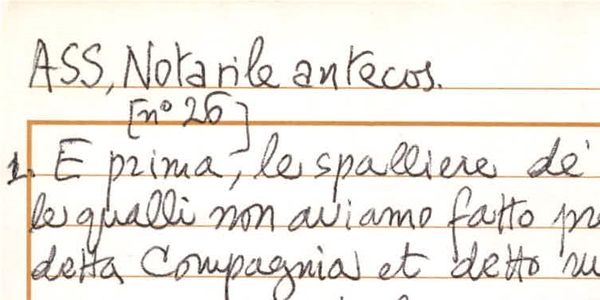 ASS, Notarile antecos.
[n° 26]
1. E prima, le spalliere de'
le qualli non aviamo fatto
detta Compagnia et detto